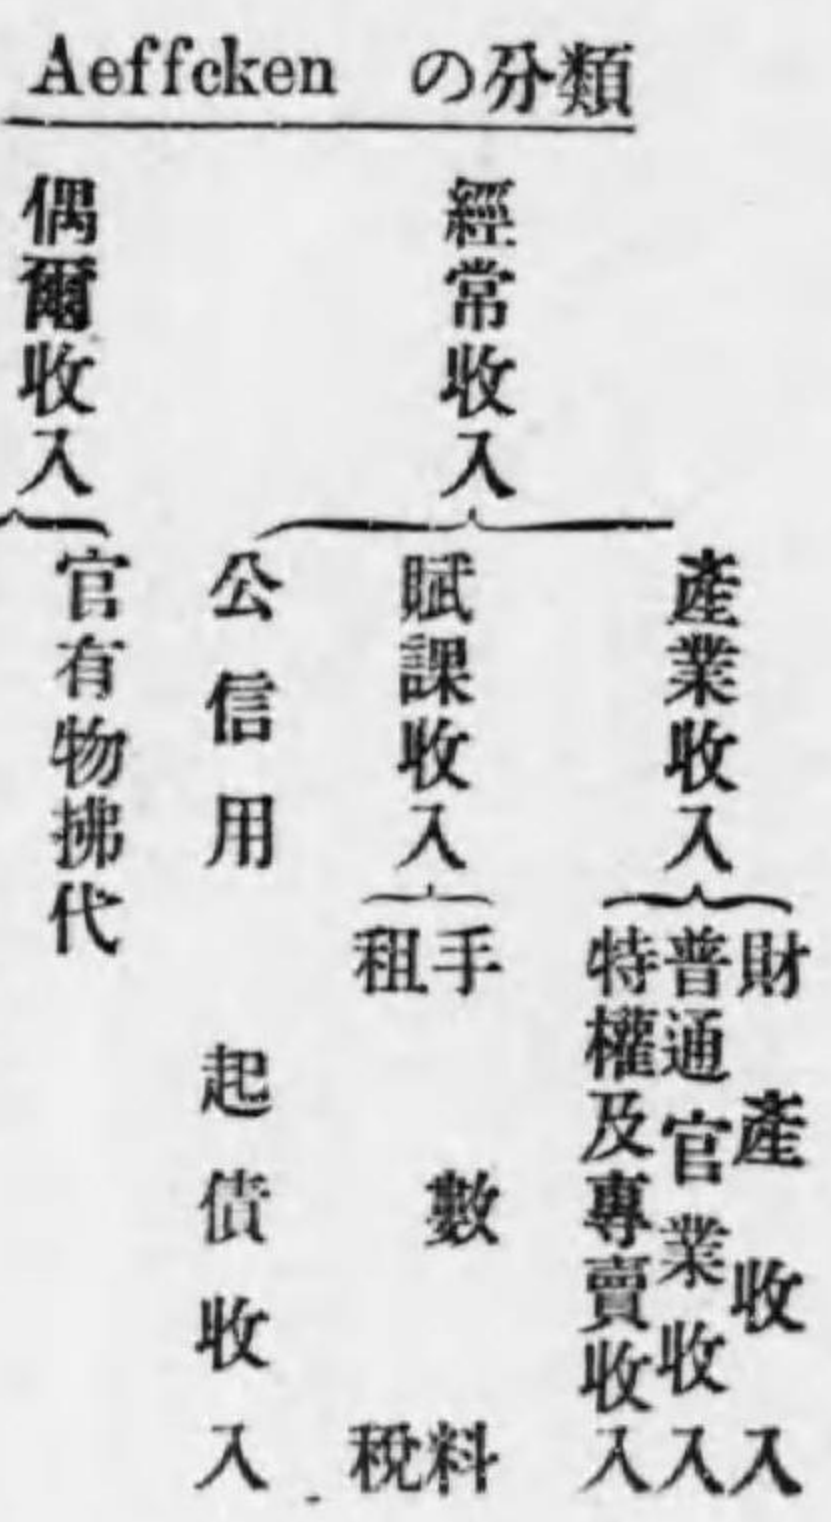 Aeffcken の分類
經常收入
產業收入
財產收入
普通官業收入
特權及專賣收入
賦課收入
手數料
租稅
公信用
起債收入
偶爾收入
官有物拂代